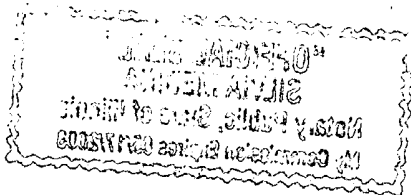 "OFFICIAL SEAL"
SILVIA MEDINA
Notary Public, State of Illinois
My Commission Expires 05/17/2009